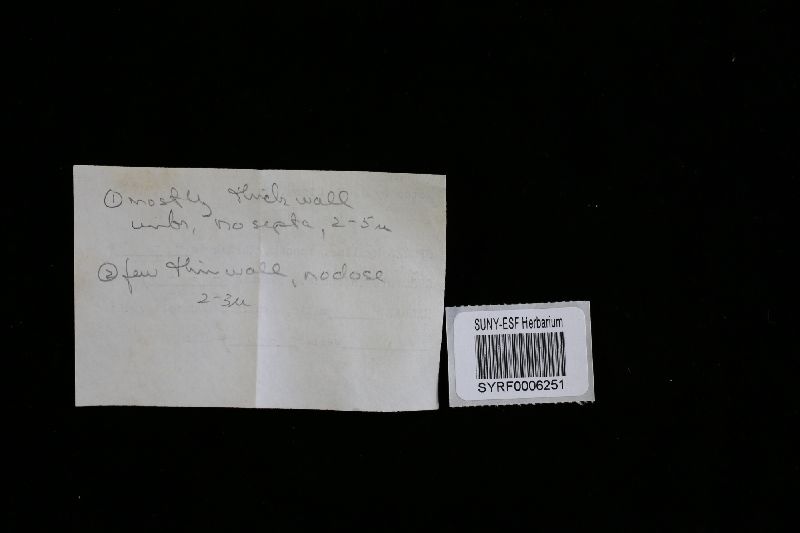 ① mostly thick wall
unbr, no septa, 2-5u
② few thin wall, nodose
2-3u
SUNY-ESF Herbarium
SYRF0006251